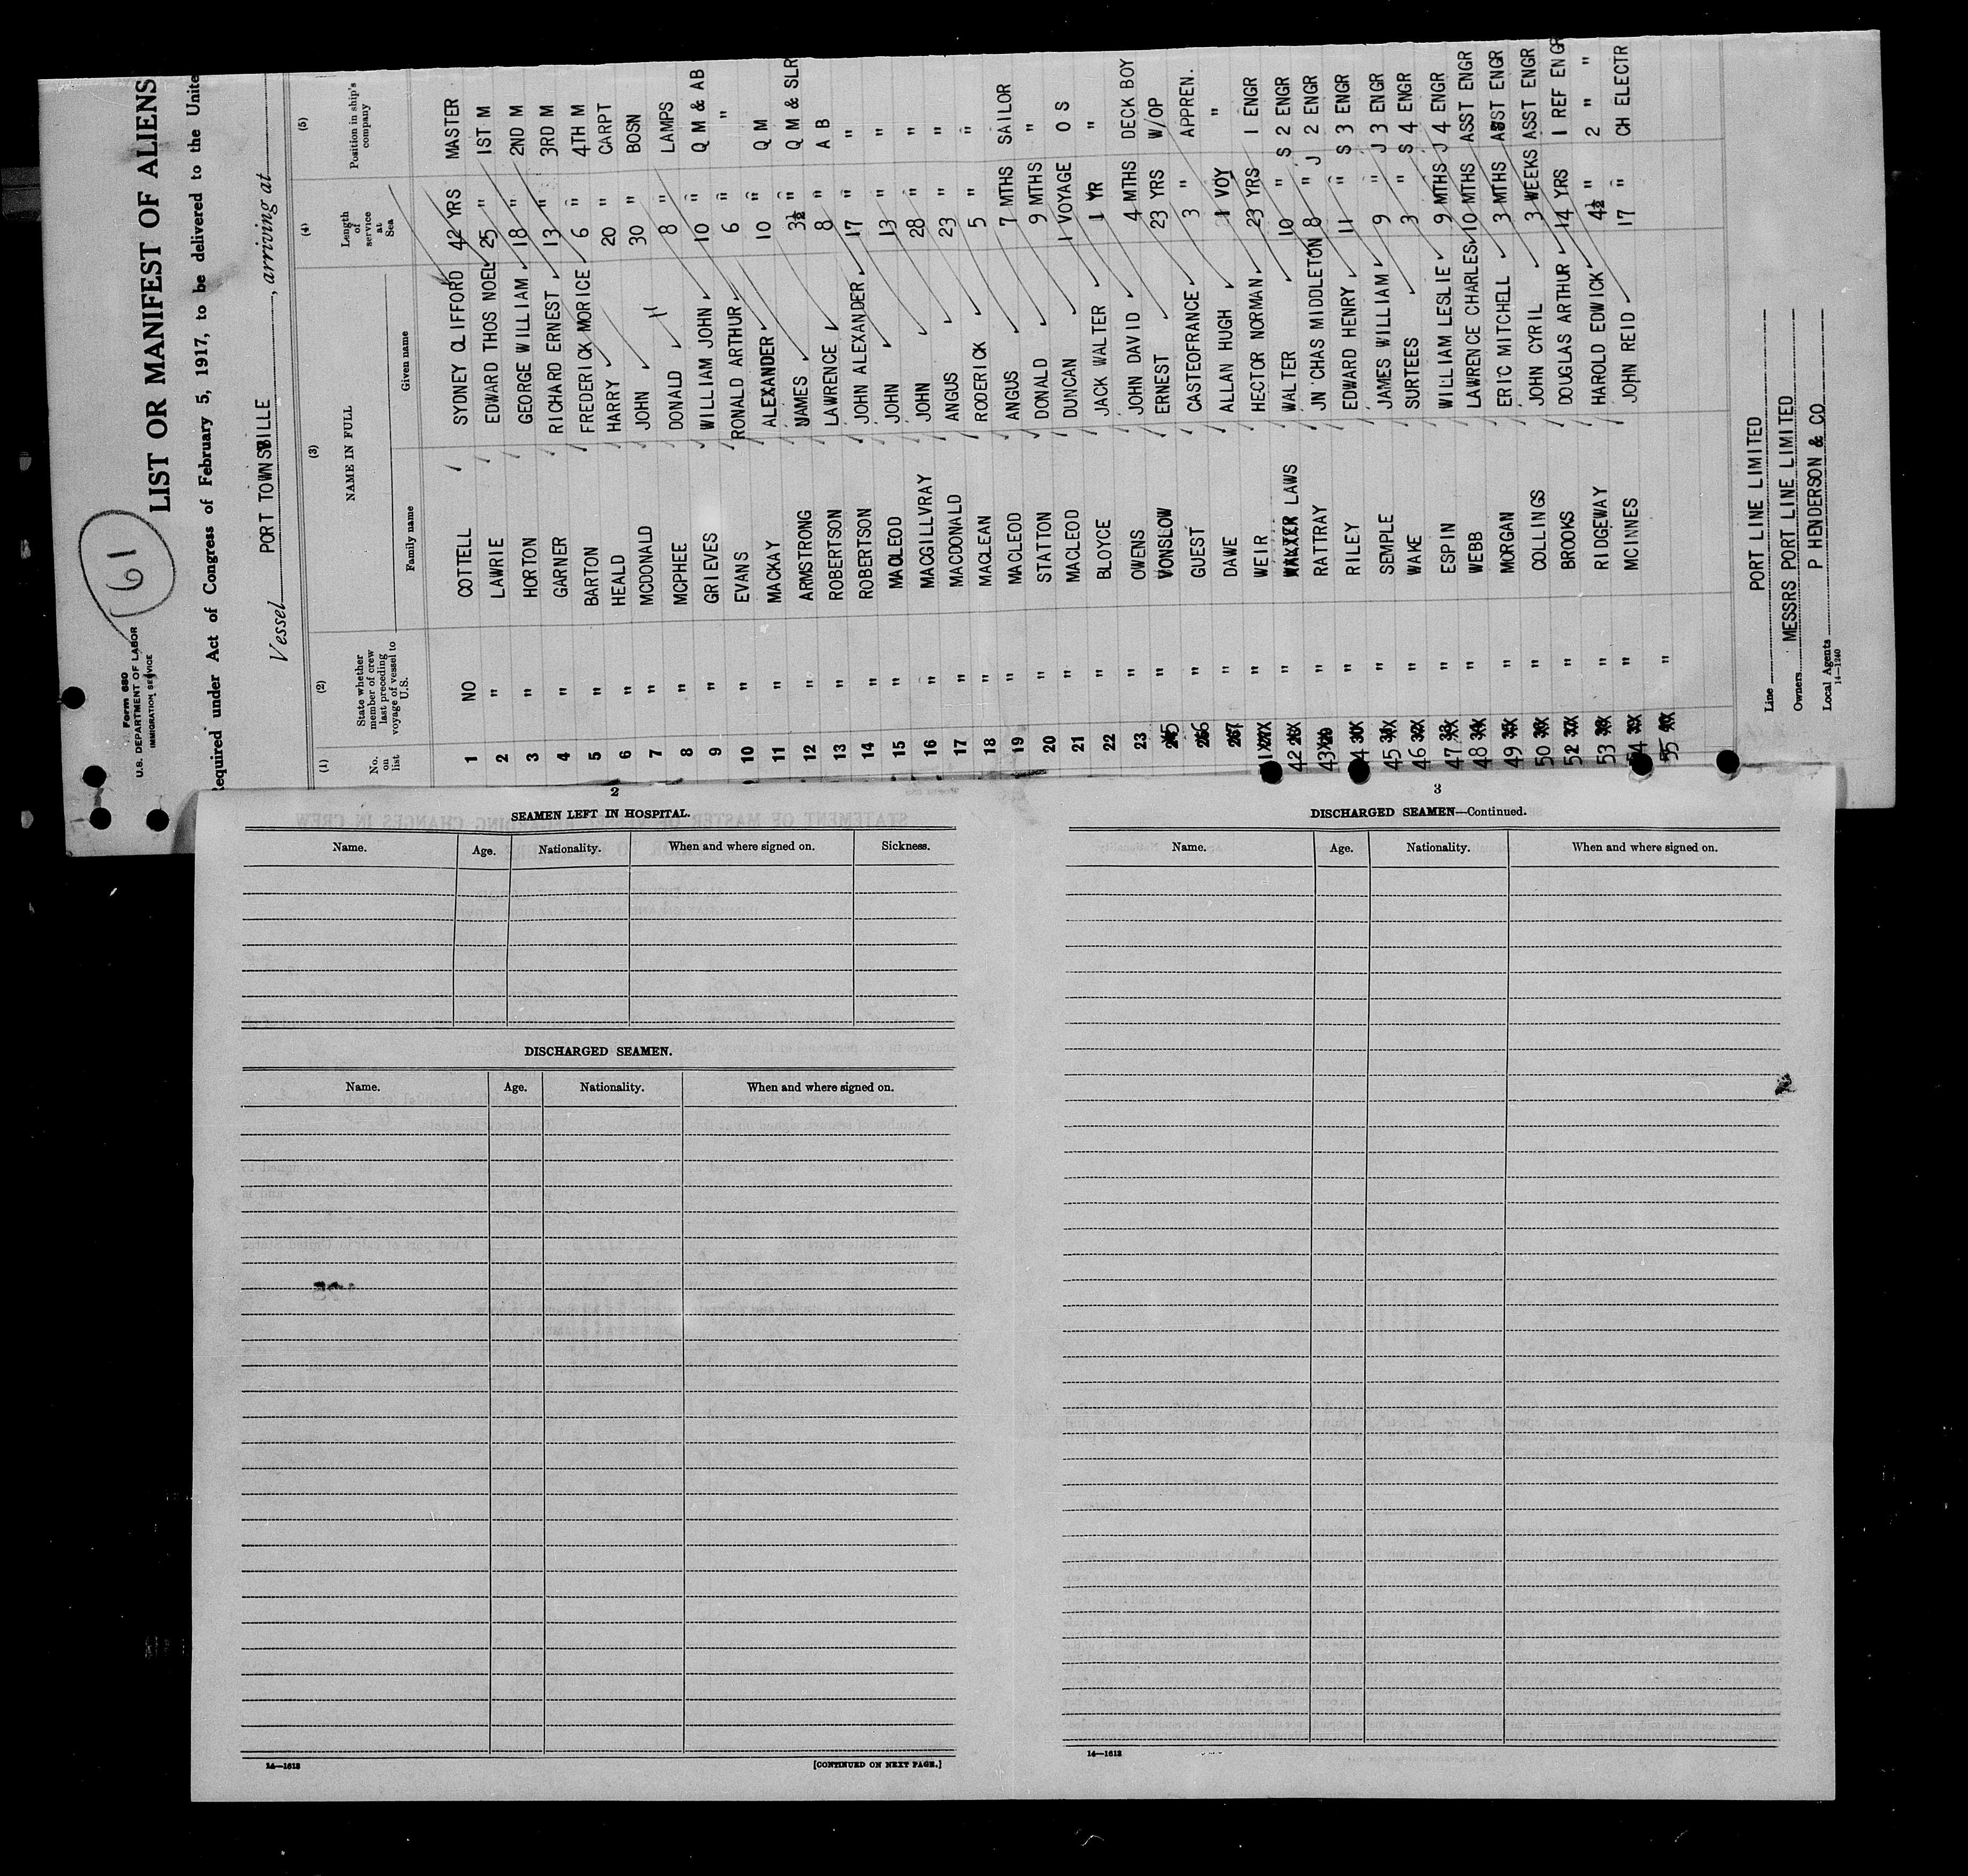 Form 680
U.S. DEPARTMENT OF LABOR
IMMIGRATION SERVICE
61
LIST OR MANIFEST OF ALIENS
Required under Act of Congress of February 5, 1917, to be delivered to the Unite
Vessel PORT TOWNSVILLE, arriving at
(1) (2) (3) (4) (5)
No. on list State whether member of crew last preceding voyage of vessel to U.S. NAME IN FULL Length of service at Sea Position in ship's company
Family name Given name
1 NO COTTELL SYDNEY CLIFFORD 42 YRS MASTER
2 " LAWRIE EDWARD THOS NOEL 25 " 1ST M
3 " HORTON GEORGE WILLIAM 18 " 2ND M
4 " GARNER RICHARD ERNEST 13 " 3RD M
5 " BARTON FREDERICK MORICE 6 " 4TH M
6 " HEALD HARRY 20 " CARPT
7 " MCDONALD JOHN 30 " BOSN
8 " MCPHEE DONALD H 8 " LAMPS
9 " GRIEVES WILLIAM JOHN 10 " Q M & AB
10 " EVANS RONALD ARTHUR 6 " "
11 " MACKAY ALEXANDER 10 " Q M
12 " ARMSTRONG JAMES 3½ " Q M & SLR
13 " ROBERTSON LAWRENCE 8 " A B
14 " ROBERTSON JOHN ALEXANDER 17 " "
15 " MACLEOD JOHN 13 " "
16 " MACGILLVRAY JOHN 28 " "
17 " MACDONALD ANGUS 23 " "
18 " MACLEAN RODERICK 5 " "
19 " MACLEOD ANGUS 7 MTHS SAILOR
20 " STATTON DONALD 9 MTHS "
21 " MACLEOD DUNCAN 1 VOYAGE O S
22 " BLOYCE JACK WALTER 1 YR "
23 " OWENS JOHN DAVID 4 MTHS DECK BOY
" VONSLOW ERNEST 23 YRS W/OP
" GUEST CASTEOFRANCE 3 " APPREN.
" DAWE ALLAN HUGH 1 VOY "
" WEIR HECTOR NORMAN 23 YRS 1 ENGR
42 " LAWS WALTER 10 " S 2 ENGR
43 " RATTRAY JN CHAS MIDDLETON 8 " J 2 ENGR
44 " RILEY EDWARD HENRY 11 " S 3 ENGR
45 " SEMPLE JAMES WILLIAM 9 " J 3 ENGR
46 " WAKE SURTEES 3 " S 4 ENGR
47 " ESPIN WILLIAM LESLIE 9 MTHS J 4 ENGR
48 " WEBB LAWRENCE CHARLES 10 MTHS ASST ENGR
49 " MORGAN ERIC MITCHELL 3 MTHS ASST ENGR
50 " COLLINGS JOHN CYRIL 3 WEEKS ASST ENGR
52 " BROOKS DOUGLAS ARTHUR 14 YRS 1 REF ENGR
53 " RIDGEWAY HAROLD EDWICK 4½ " 2 " "
54 " MCINNES JOHN REID 17 " CH ELECTR
55 "
Line PORT LINE LIMITED
Owners MESSRS PORT LINE LIMITED
Local Agents P HENDERSON & CO
14—1240
2
SEAMEN LEFT IN HOSPITAL.
Name. Age. Nationality. When and where signed on. Sickness.
DISCHARGED SEAMEN.
Name. Age. Nationality. When and where signed on.
14—1613
[CONTINUED ON NEXT PAGE.]
3
DISCHARGED SEAMEN—Continued.
Name. Age. Nationality. When and where signed on.
14—1613